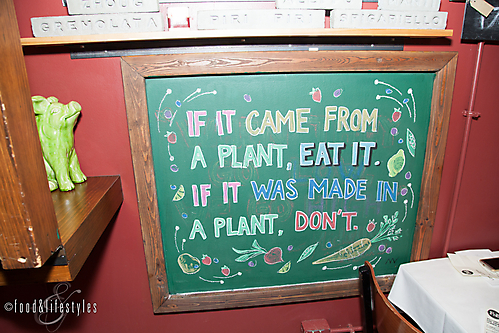 GREMOLATA PIRI PIRI PESTORELLO
IF IT CAME FROM
A PLANT, EAT IT.
IF IT WAS MADE IN
A PLANT, DON'T.
©food&lifestyles